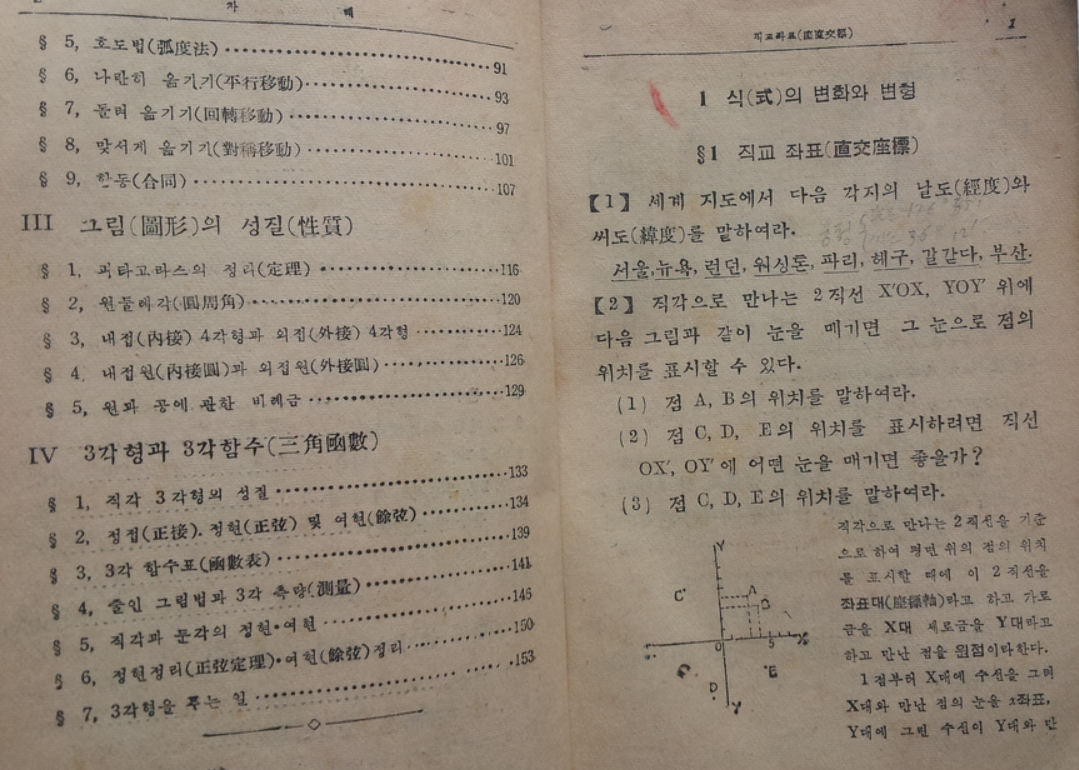 차 례
§ 5, 호도법(弧度法) 91
§ 6, 나란히 옮기기(平行移動) 93
§ 7, 돌려 옮기기(回轉移動) 97
§ 8, 맞서게 옮기기(對稱移動) 101
§ 9, 한동(合同) 107
III 그림(圖形)의 성질(性質)
§ 1, 피타고라스의 정리(定理) 116
§ 2, 원둘레각(圓周角) 120
§ 3, 내접(內接) 4각형과 외접(外接) 4각형 124
§ 4. 내접원(內接圓)과 외접원(外接圓) 126
§ 5, 원과 공에 관한 비례금 129
IV 3각형과 3각함수(三角函數)
§ 1, 직각 3각형의 성질 133
§ 2, 정접(正接). 정현(正弦) 및 여현(餘弦) 134
§ 3, 3각 함수표(函數表) 139
§ 4, 줄인 그림법과 3각 측량(測量) 141
§ 5, 직각과 둔각의 정현·여현 146
§ 6, 정현정리(正弦定理)·여현(餘弦)정리 150
§ 7, 3각형을 푸는 일 153
직교좌표(直交座標) 1
1 식(式)의 변화와 변형
§1 직교 좌표(直交座標)
【1】 세계 지도에서 다음 각지의 날도(經度)와
씨도(緯度)를 말하여라.
서울, 뉴욕, 런던, 워싱톤, 파리, 헤구, 갈간다, 부산.
【2】 직각으로 만나는 2직선 X′OX, YOY′ 위에
다음 그림과 같이 눈을 매기면 그 눈으로 점의
위치를 표시할 수 있다.
(1) 점 A, B의 위치를 말하여라.
(2) 점 C, D, E의 위치를 표시하려면 직선
OX′, OY′에 어떤 눈을 매기면 좋을가?
(3) 점 C, D, E의 위치를 말하여라.
Y
C
A
B
0 5 X
E
D
Y
직각으로 만나는 2직선을 기준
으로 하여 평면 위의 점의 위치
를 표시할 때에 이 2직선을
좌표대(座標軸)라고 하고 가로
금을 X대 세로금을 Y대라고
하고 만난 점을 원점이라한다.
1점부터 X대에 수선을 그려
X대와 만난 점의 눈을 x좌표,
Y대에 그린 수선이 Y대와 만